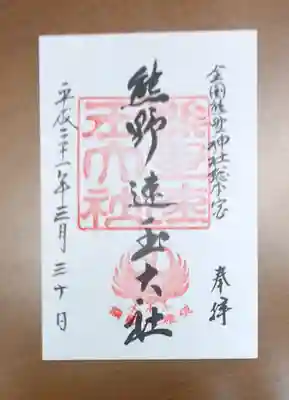 全国熊野神社総本宮
奉拝
熊野速玉大社
平成二十一年三月三十日
熊野速
玉大社